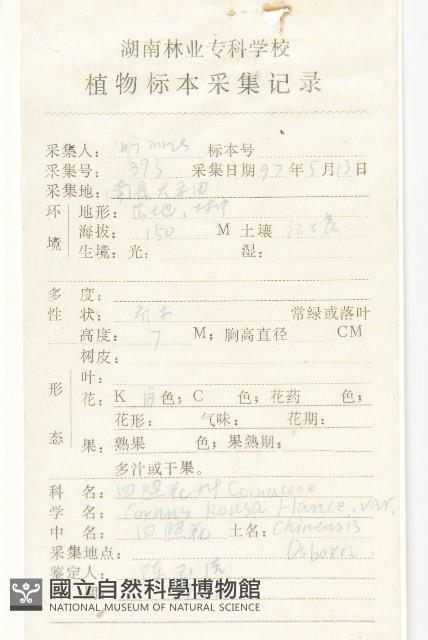 湖南林业专科学校
植物标本采集记录
采集人： 标本号
采集号： 393 采集日期 97 年 5 月 13 日
采集地：
环境 地形：
海拔： 150 M 土壤 红壤
生境：光： 湿：
多 度：
性 状： 乔木 常绿或落叶
高度： 7 M；胸高直径 CM
形态 树皮：
叶：
花： K 色；C 色；花药 色；
花形： 气味： 花期：
果：熟果 色；果熟期：
多汁或干果。
科 名： 四照花科 Cornaceae
学 名： Cornus Kousa Hance. var.
中 名： 四照花 土名： Chinensis
采集地点： Osborn
鉴定人：
期
國立自然科學博物館
NATIONAL MUSEUM OF NATURAL SCIENCE